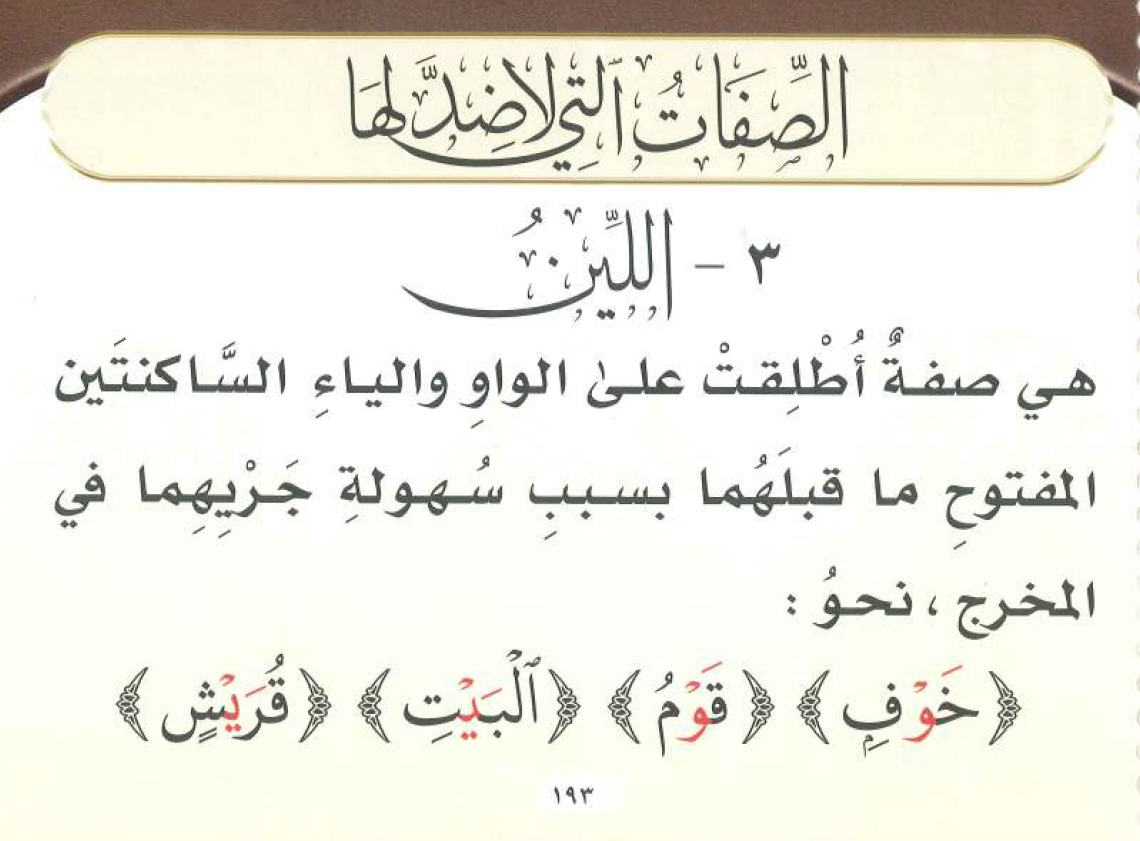 الصِّفَاتُ ٱلَّتِي لَاضِدَّ لَهَا
٣ - اللِّينُ
هي صفةٌ أُطْلِقتْ علىٰ الواوِ والياءِ السَّاكنتَين
المفتوحِ ما قبلَهُما بسببِ سُهولةِ جَرْيِهِما في
المخرج ، نحوُ :
﴿خَوْفِۭ﴾ ﴿قَوْمُ﴾ ﴿ٱلْبَيْتِ﴾ ﴿قُرَيْشٍ﴾
١٩٣